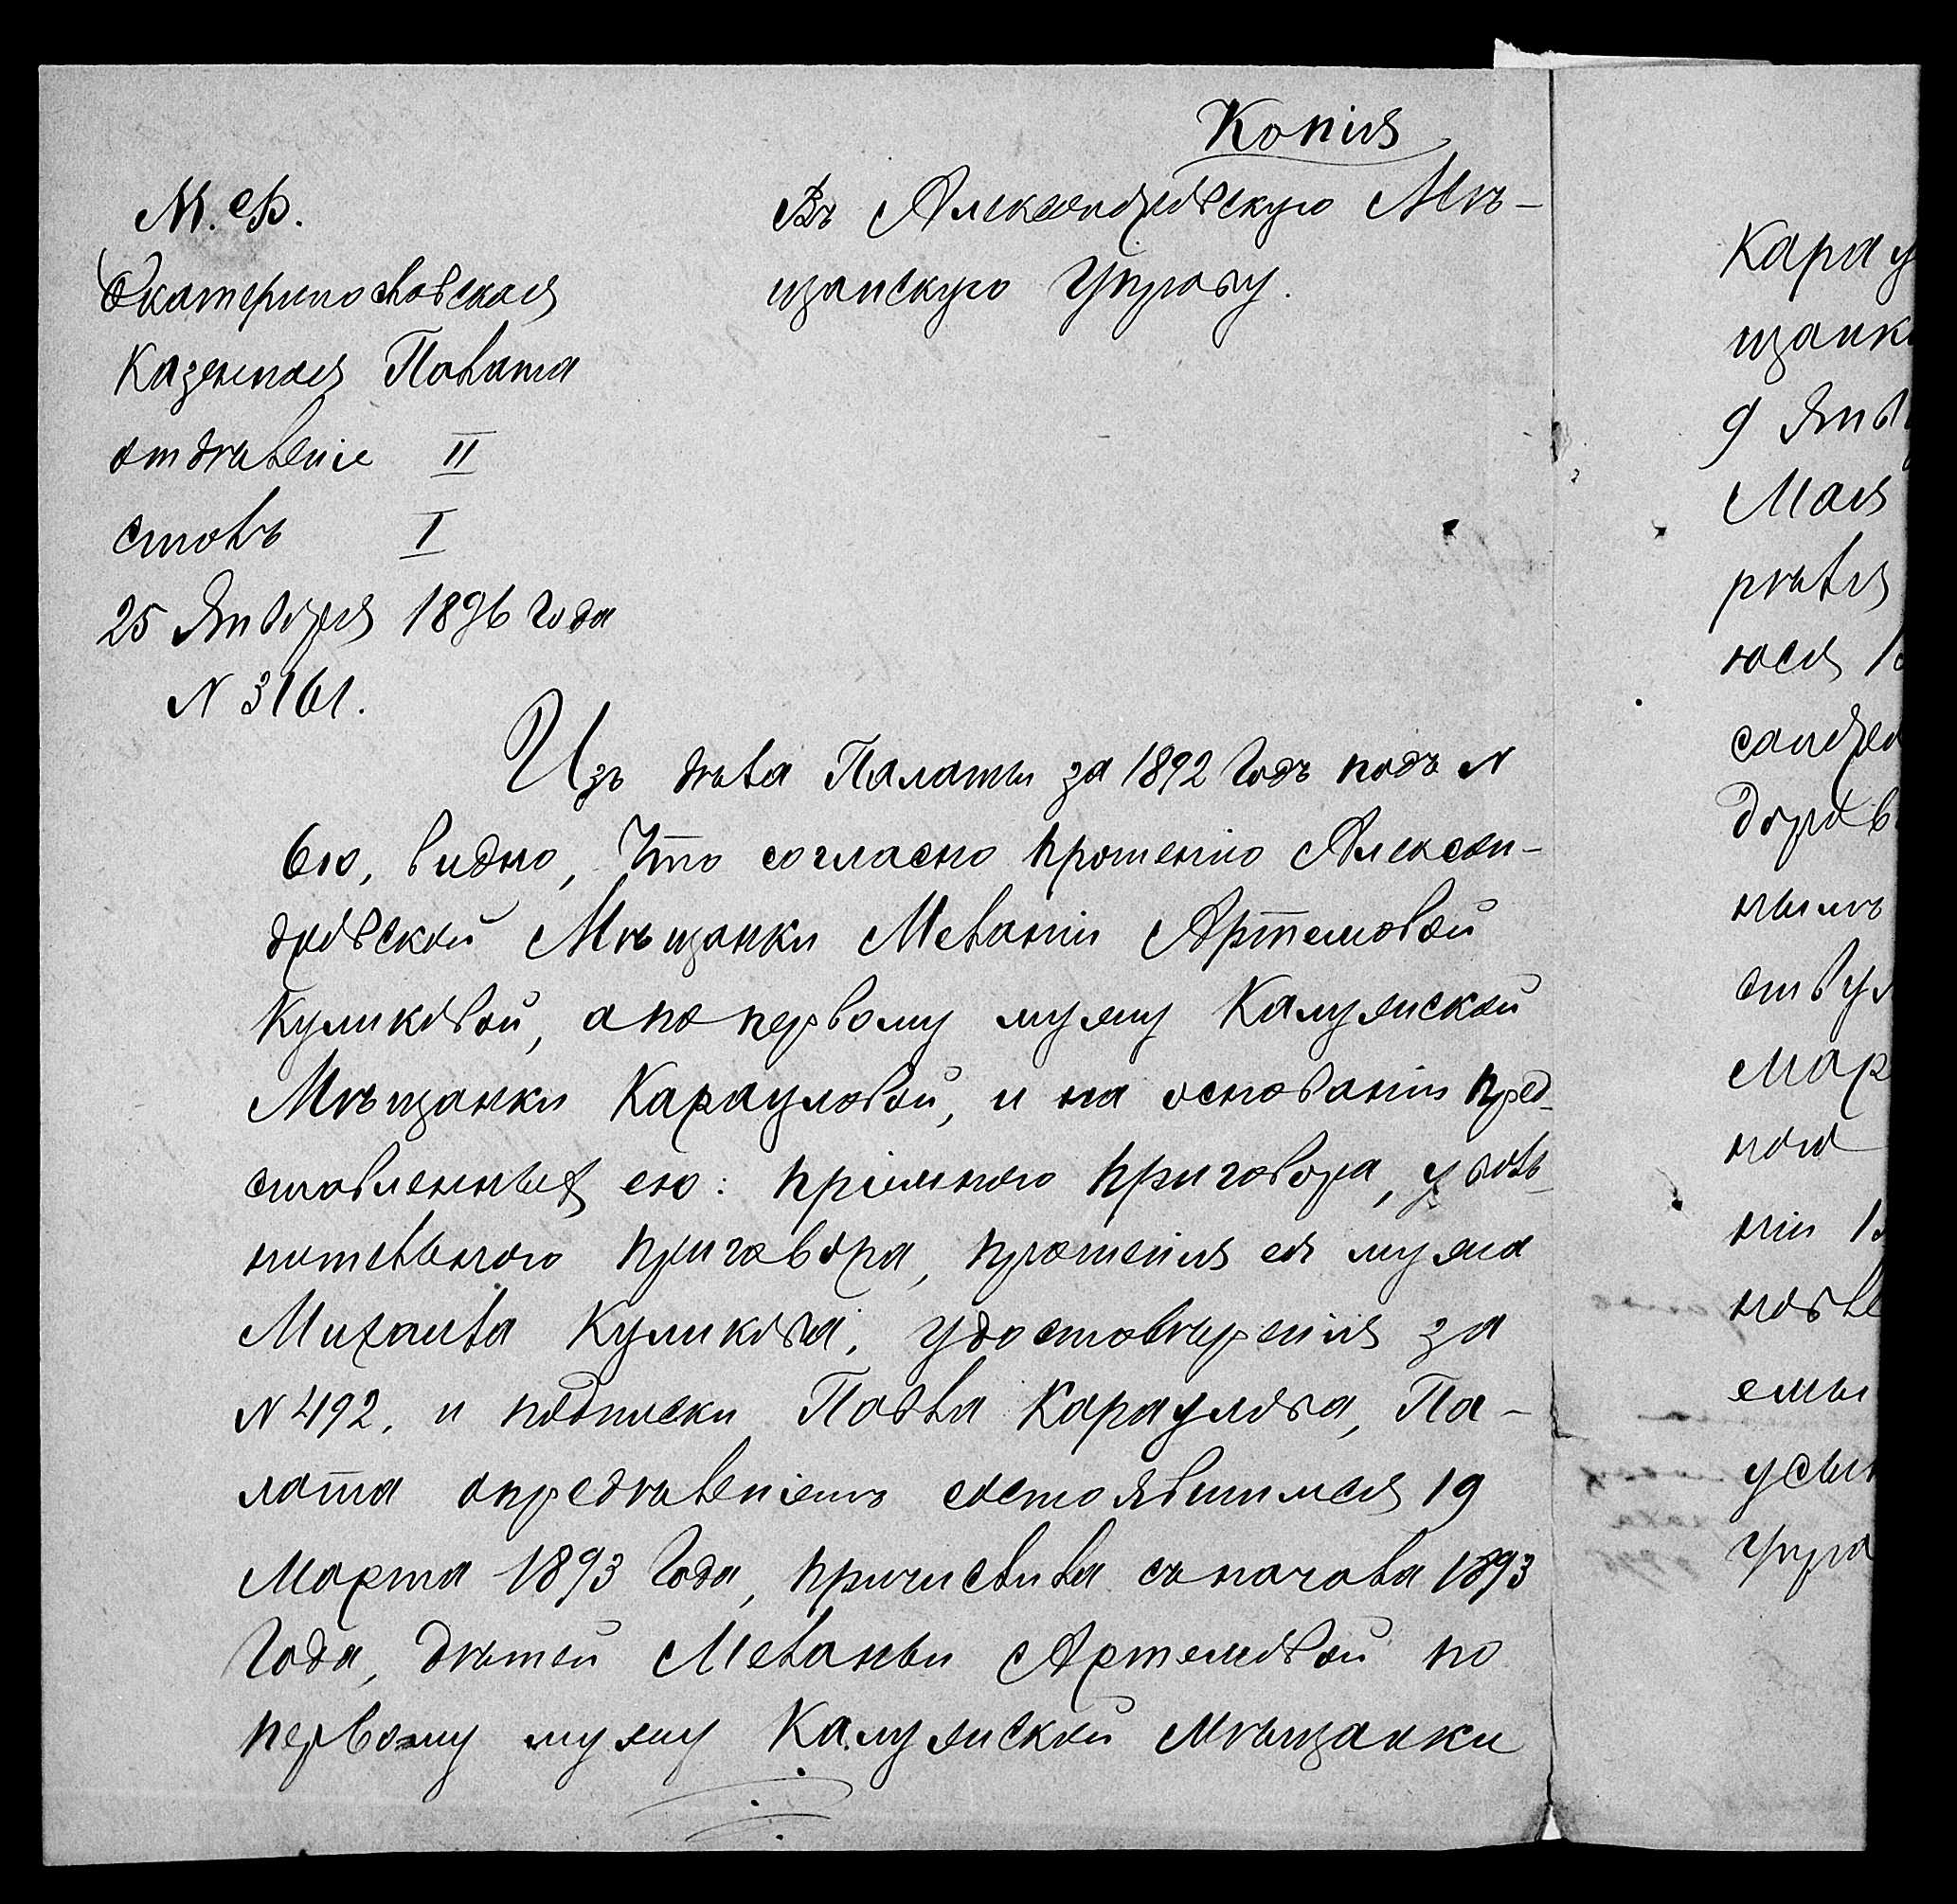 Копія
М. Ф.
Екатеринославская
Казенная Палата
отдѣленіе II
столъ I
25 Января 1896 года
N 3161.
Въ Александровскую Мѣ-
щанскую Управу.
Изъ дѣла Палаты за 1892 годъ подъ N
6ю, видно, что согласно прошенію Алексан-
дровской Мѣщанки Меланіи Артемовой
Куликовой, а по первому мужу Калужской
Мѣщанки Карауловой, и на основаніи пред-
ставленныхъ ею: пріемного приговора, уволь-
нительного приговора, прошенія ея мужа
Михаила Куликова, удостовѣренія за
N 492, и подписки Павла Караулова, Па-
лата опредѣленіемъ состоявшимся 19
Марта 1893 года, причислила съ начала 1893
года, дѣтей Меланьи Артемовой по
первому мужу Калужской мѣщанки
Карау
щанк
9 Янв
Мая
рѣля
юся
сандров
доров
нымъ
ству
мар
ного
ніи
новле
емы
усын
Упра